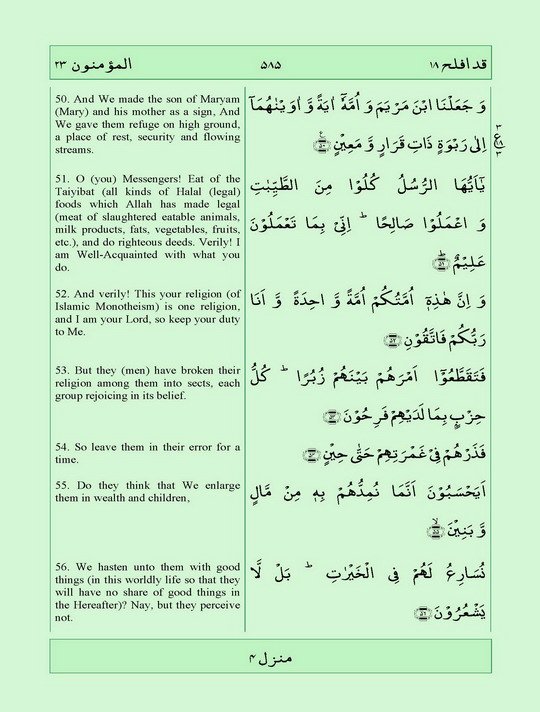 قد افلح ۱۸
۵۸۵
المؤمنون ۲۳
50. And We made the son of Maryam
(Mary) and his mother as a sign, And
We gave them refuge on high ground,
a place of rest, security and flowing
streams.
وَ جَعَلْنَا ابْنَ مَرْيَمَ وَ اُمَّهٗۤ اٰيَةً وَّ اٰوَيْنٰهُمَاۤ
اِلٰى رَبْوَةٍ ذَاتِ قَرَارٍ وَّ مَعِيْنٍ ۵۰
51. O (you) Messengers! Eat of the
Taiyibat (all kinds of Halal (legal)
foods which Allah has made legal
(meat of slaughtered eatable animals,
milk products, fats, vegetables, fruits,
etc.), and do righteous deeds. Verily! I
am Well-Acquainted with what you
do.
يٰۤاَيُّهَا الرُّسُلُ كُلُوْا مِنَ الطَّيِّبٰتِ
وَ اعْمَلُوْا صَالِحًا ؕ اِنِّيْ بِمَا تَعْمَلُوْنَ
عَلِيْمٌ ۵۱
52. And verily! This your religion (of
Islamic Monotheism) is one religion,
and I am your Lord, so keep your duty
to Me.
وَ اِنَّ هٰذِهٖۤ اُمَّتُكُمْ اُمَّةً وَّ احِدَةً وَّ اَنَا
رَبُّكُمْ فَاتَّقُوْنِ ۵۲
53. But they (men) have broken their
religion among them into sects, each
group rejoicing in its belief.
فَتَقَطَّعُوْۤا اَمْرَهُمْ بَيْنَهُمْ زُبُرًا ؕ كُلُّ
حِزْبٍۭ بِمَا لَدَيْهِمْ فَرِحُوْنَ ۵۳
54. So leave them in their error for a
time.
فَذَرْهُمْ فِيْ غَمْرَتِهِمْ حَتّٰى حِيْنٍ ۵۴
55. Do they think that We enlarge
them in wealth and children,
اَيَحْسَبُوْنَ اَنَّمَا نُمِدُّهُمْ بِهٖ مِنْ مَّالٍ
وَّ بَنِيْنَ ۵۵
56. We hasten unto them with good
things (in this worldly life so that they
will have no share of good things in
the Hereafter)? Nay, but they perceive
not.
نُسَارِعُ لَهُمْ فِي الْخَيْرٰتِ ؕ بَلْ لَّا
يَشْعُرُوْنَ ۵۶
منزل ۴